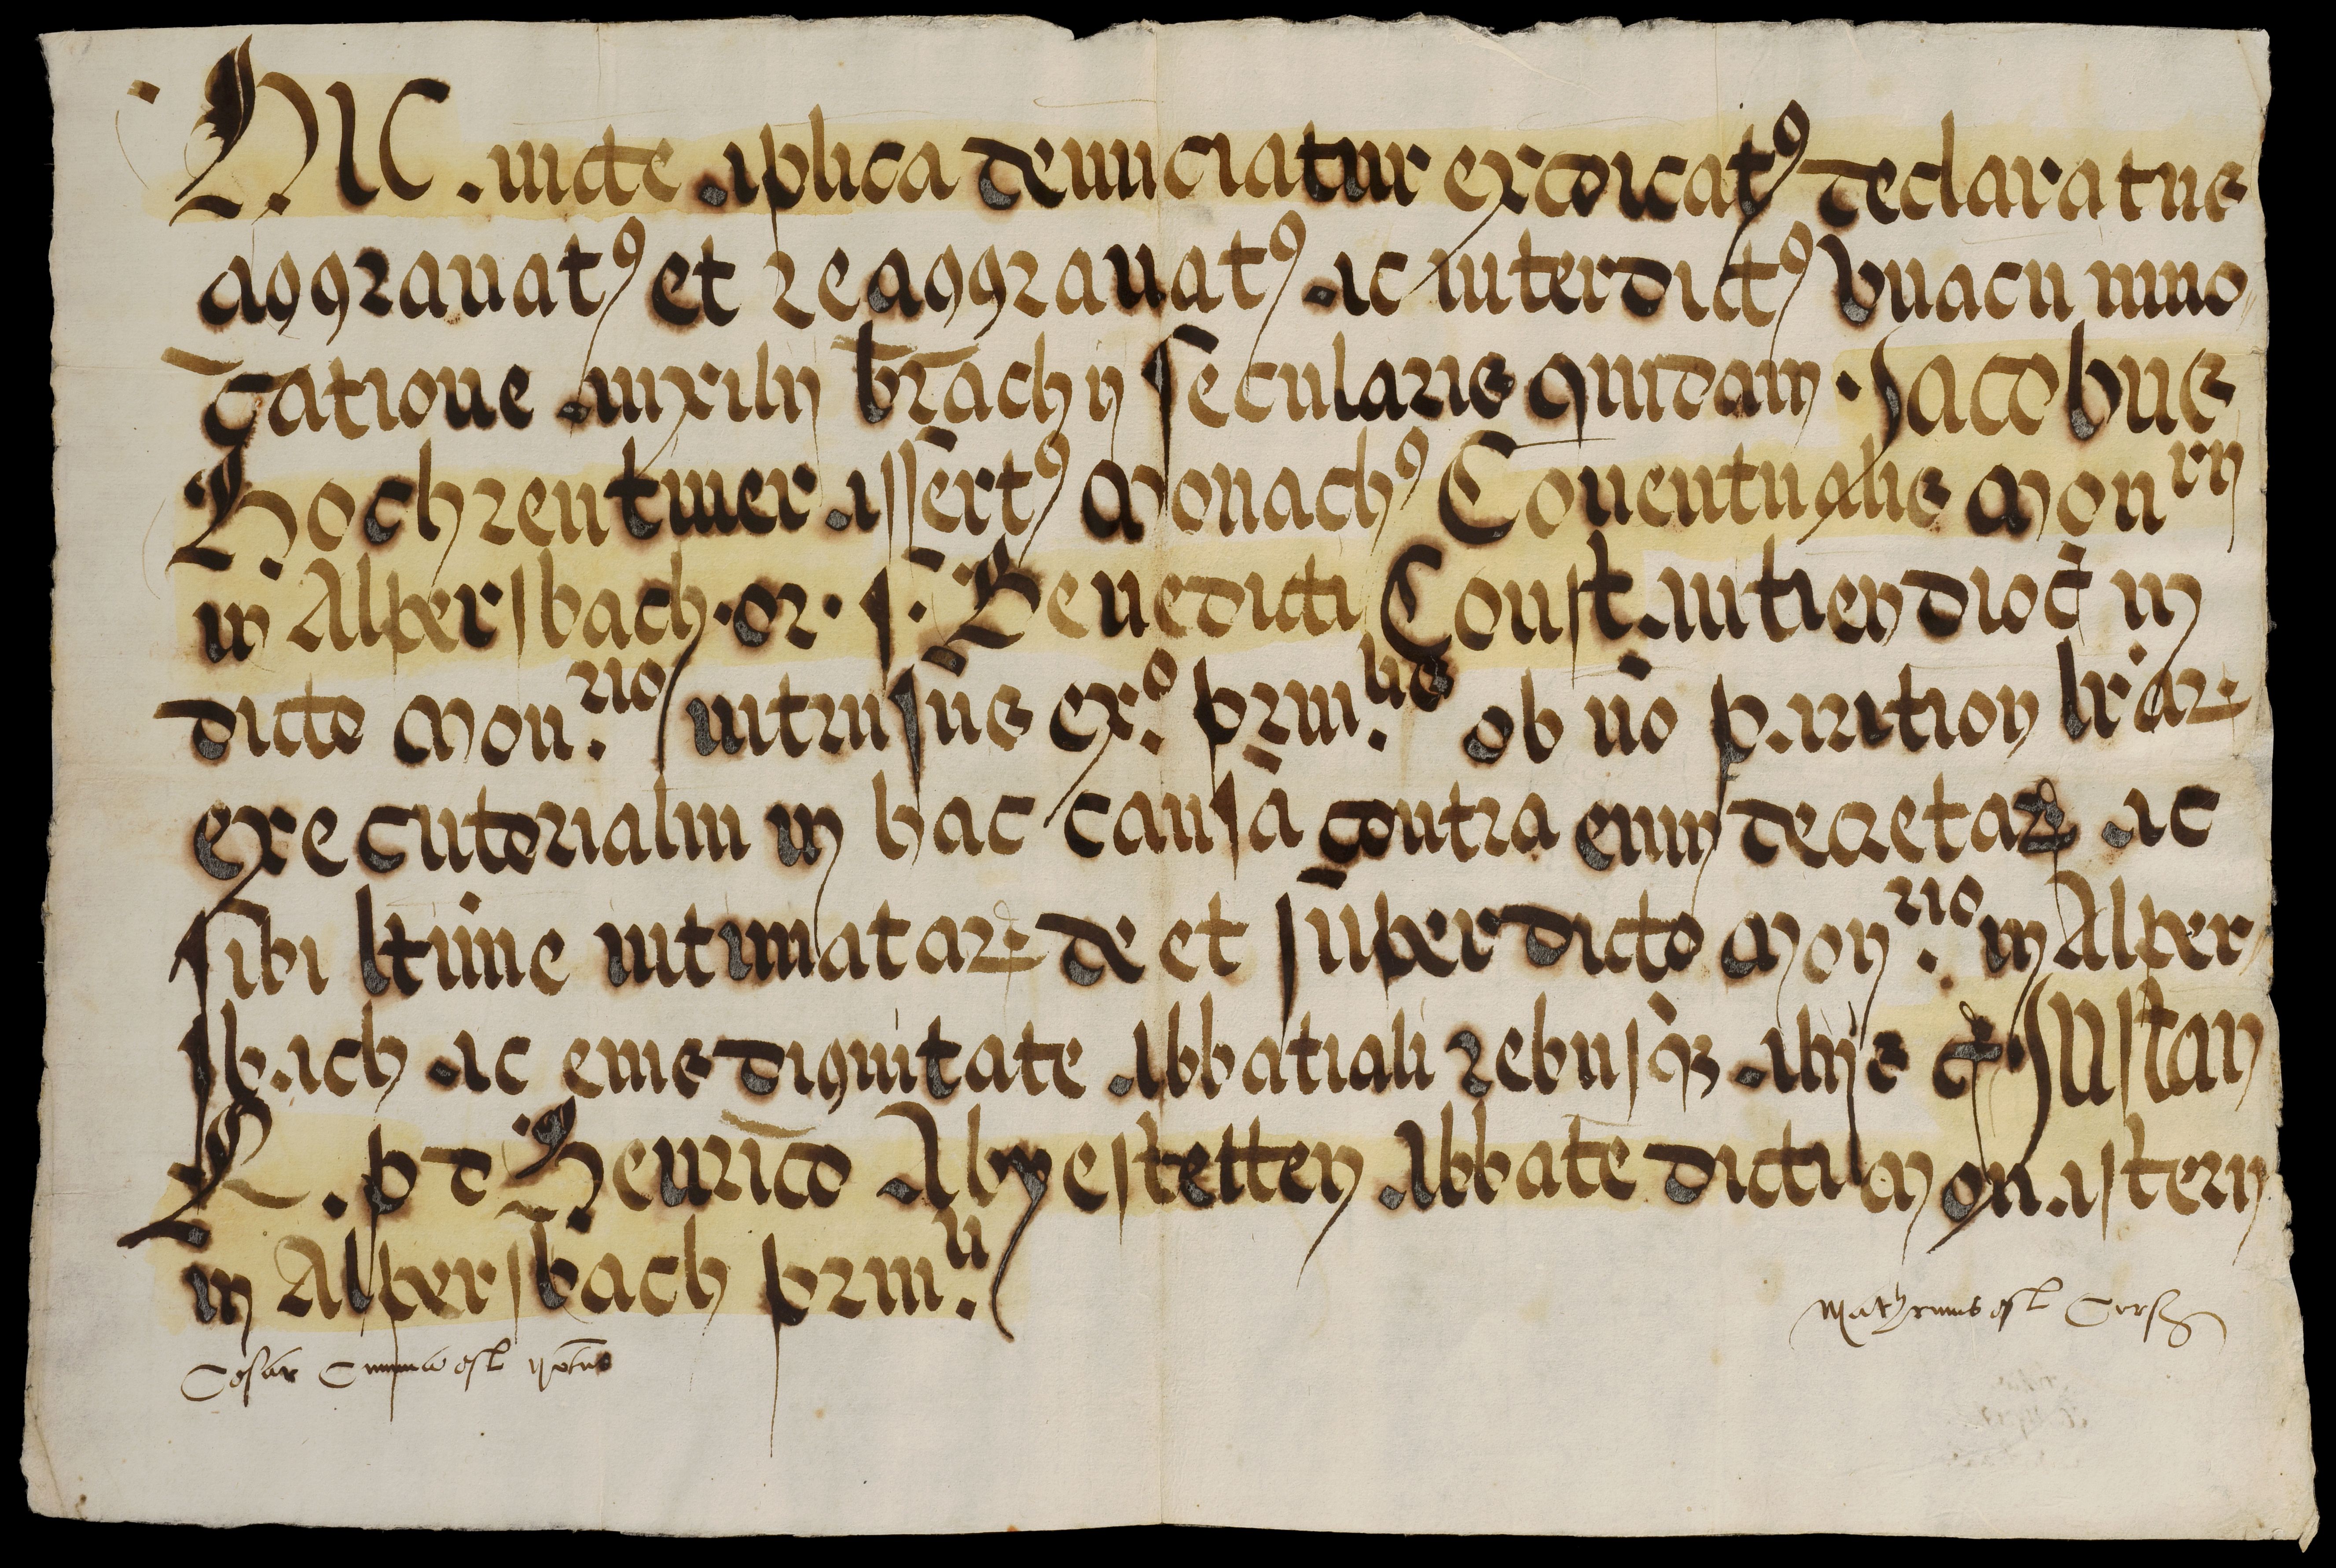 HIC aucte aplica denuciatur excoicat⁹ declaratus
aggravat⁹ et reaggravat⁹ ac interdict⁹ vnacu inuo
catione auxilij brachij secularis quidam Jacobus
Hochrentiner assert⁹ monach⁹ Conentualis monrij
in Alpersbach. or. s. Benedicti Constantien dioc in
dicto mon.rio intrusus ex.o prin.lis ob no parition lrar
executorialiu in hac causa contra eum decretar ac
sibi ltime intimatar de et super dicto mon.rio in Alper
sbach ac eius dignitate abbatiali rebusq alijs &c Instan
R. p d Henrico Abyestetten Abbate dicti monasterij
in Alpersbach prin.li
Mathy
Cesar not